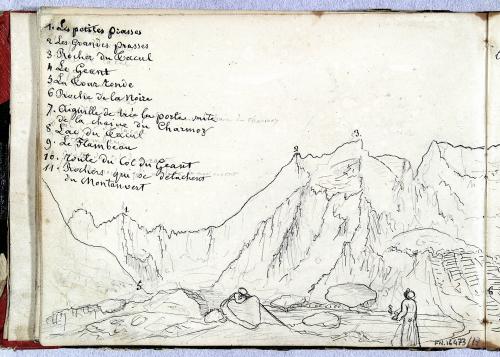 1. Les petites Jrasses
2 Les Grandes Jrasses
3 Rocher du Tacul
4 Le Geant
5 La Tour ronde
6 Roche de la Noire
7. Aiguille de la porte
de la chaine du Charmoz
8 Lac du Tacul
9. Le Flambeau
10. route du Col du Geant
11. Rochers qui se détachent
du Montanvert
1
2
.3.
8
6
FN.16473/12